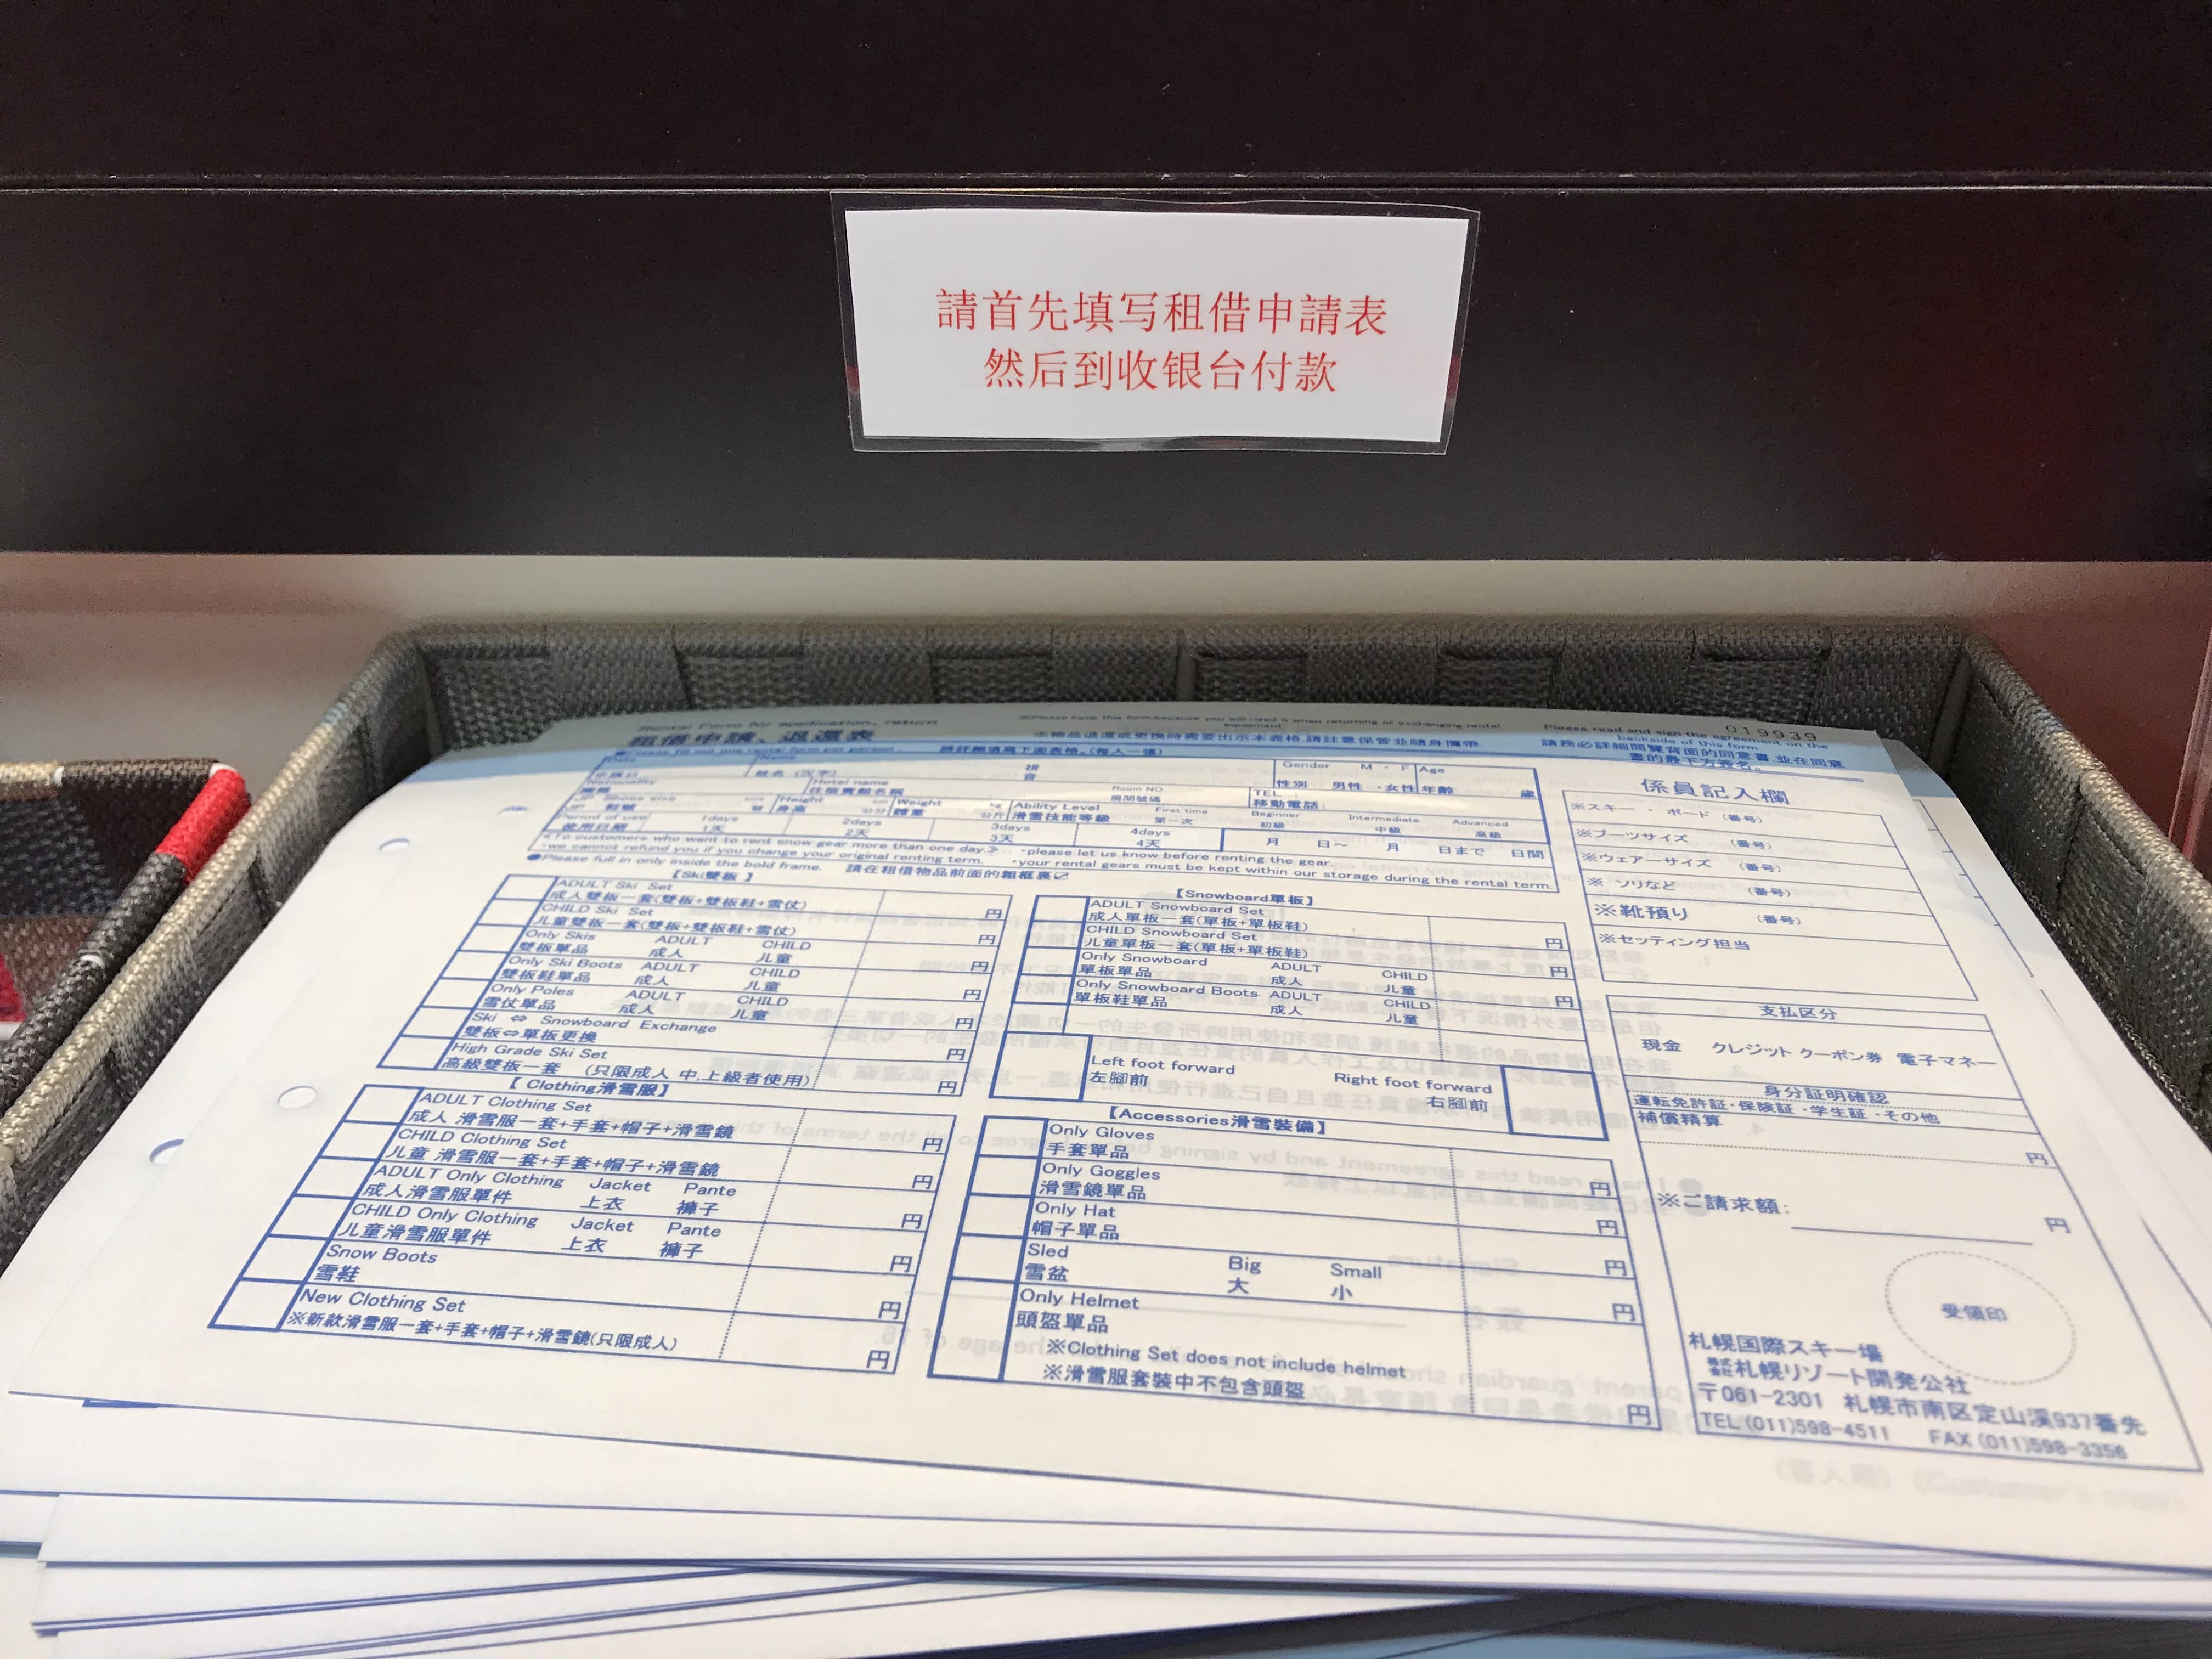 請首先填写租借申請表
然后到收银台付款
Rental Form for application, return
租借申請、退還表
※Please keep this form because you will need it when returning or exchanging rental equipment.
※物品退還或更換時需要出示本表格,請註意保管並隨身攜帶
Please read and sign the agreement on the backside of this form.
請務必詳細閲覽背面的同意書,並在同意書的最下方簽名。
019939
●Please fill out one rental form per person
請詳細填寫下面表格。(每人一張)
Date
Name
姓名 (汉字)
拼音
Gender M ・ F Age
性別 男性 ・女性 年齡 歲
Nationality
Hotel name
住宿賓館名稱
Room NO.
房間號碼
TEL :
移動電話:
JP Shoes size
Height cm
身高 公分
Weight kg
體重 公斤
Ability Level First time Beginner Intermediate Advanced
滑雪技能等級 第一次 初級 中級 高級
Period of use 1days 2days 3days 4days
使用日期 1天 2天 3天 4天
月 日～ 月 日まで 日間
≪To customers who want to rent snow gear more than one day.≫ ・please let us know before renting the gear.
・we cannot refund you if you change your original renting term. ・your rental gears must be kept within our storage during the rental term.
●Please full in only inside the bold frame. 請在租借物品前面的粗框裏☑
【Ski雙板 】
ADULT Ski Set
成人雙板一套(雙板+雙板鞋+雪仗) 円
CHILD Ski Set
儿童雙板一套(雙板+雙板鞋+雪仗) 円
Only Skis ADULT CHILD
雙板單品 成人 儿童 円
Only Ski Boots ADULT CHILD
雙板鞋單品 成人 儿童 円
Only Poles ADULT CHILD
雪仗單品 成人 儿童 円
Ski ⇔ Snowboard Exchange
雙板⇔單板更換 円
High Grade Ski Set
高級雙板一套 (只限成人 中,上級者使用) 円
【Snowboard單板】
ADULT Snowboard Set
成人單板一套(單板+單板鞋) 円
CHILD Snowboard Set
儿童單板一套(單板+單板鞋) 円
Only Snowboard ADULT CHILD
單板單品 成人 儿童 円
Only Snowboard Boots ADULT CHILD
單板鞋單品 成人 儿童 円
Left foot forward Right foot forward
左腳前 右腳前
【 Clothing滑雪服】
ADULT Clothing Set
成人 滑雪服一套+手套+帽子+滑雪鏡 円
CHILD Clothing Set
儿童 滑雪服一套+手套+帽子+滑雪鏡 円
ADULT Only Clothing Jacket Pante
成人滑雪服單件 上衣 褲子 円
CHILD Only Clothing Jacket Pante
儿童滑雪服單件 上衣 褲子 円
Snow Boots
雪鞋 円
New Clothing Set
※新款滑雪服一套+手套+帽子+滑雪鏡(只限成人) 円
【Accessories滑雪裝備】
Only Gloves
手套單品 円
Only Goggles
滑雪鏡單品 円
Only Hat
帽子單品 円
Sled Big Small
雪盆 大 小 円
Only Helmet
頭盔單品
※Clothing Set does not include helmet
※滑雪服套裝中不包含頭盔 円
係員記入欄
※スキー ・ ボード (番号)
※ブーツサイズ (番号)
※ウェアーサイズ (番号)
※ ソリなど (番号)
※靴預り (番号)
※セッティング担当
支払区分
現金 クレジット クーポン券 電子マネー
身分証明確認
運転免許証・保険証 ・学生証 ・その他
補償精算
円
※ご請求額: 円
受領印
札幌国際スキー場
株式会社札幌リゾート開発公社
〒061-2301 札幌市南区定山溪937番先
TEL (011)598-4511 FAX (011)598-3356